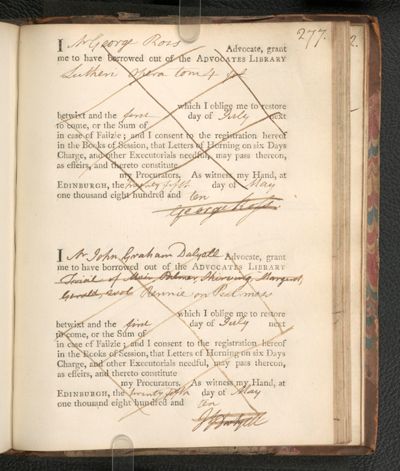 277.
2.
I Mr George Ross Advocate, grant
me to have borrowed out of the ADVOCATES LIBRARY
Lutheri opera tom 4
which I oblige me to restore
betwixt and the first day of July next
to come, or the Sum of
in case of Failzie; and I consent to the registration hereof
in the Books of Session, that Letters of Horning on six Days
Charge, and other Executorials needful, may pass thereon,
as effeirs, and thereto constitute
my Procurators. As witness my Hand, at
EDINBURGH, the twenty fifth day of May
one thousand eight hundred and ten
George Ross
I Mr John Graham Dalyell Advocate, grant
me to have borrowed out of the ADVOCATES LIBRARY
Trial of Muir, Palmer, Skirving, Margarot,
Gerald, Rennie on Peat moss
which I oblige me to restore
betwixt and the first day of July next
to come, or the Sum of
in case of Failzie; and I consent to the registration hereof
in the Books of Session, that Letters of Horning on six Days
Charge, and other Executorials needful, may pass thereon,
as effeirs, and thereto constitute
my Procurators. As witness my Hand, at
EDINBURGH, the twenty fifth day of May
one thousand eight hundred and ten
J G Dalyell